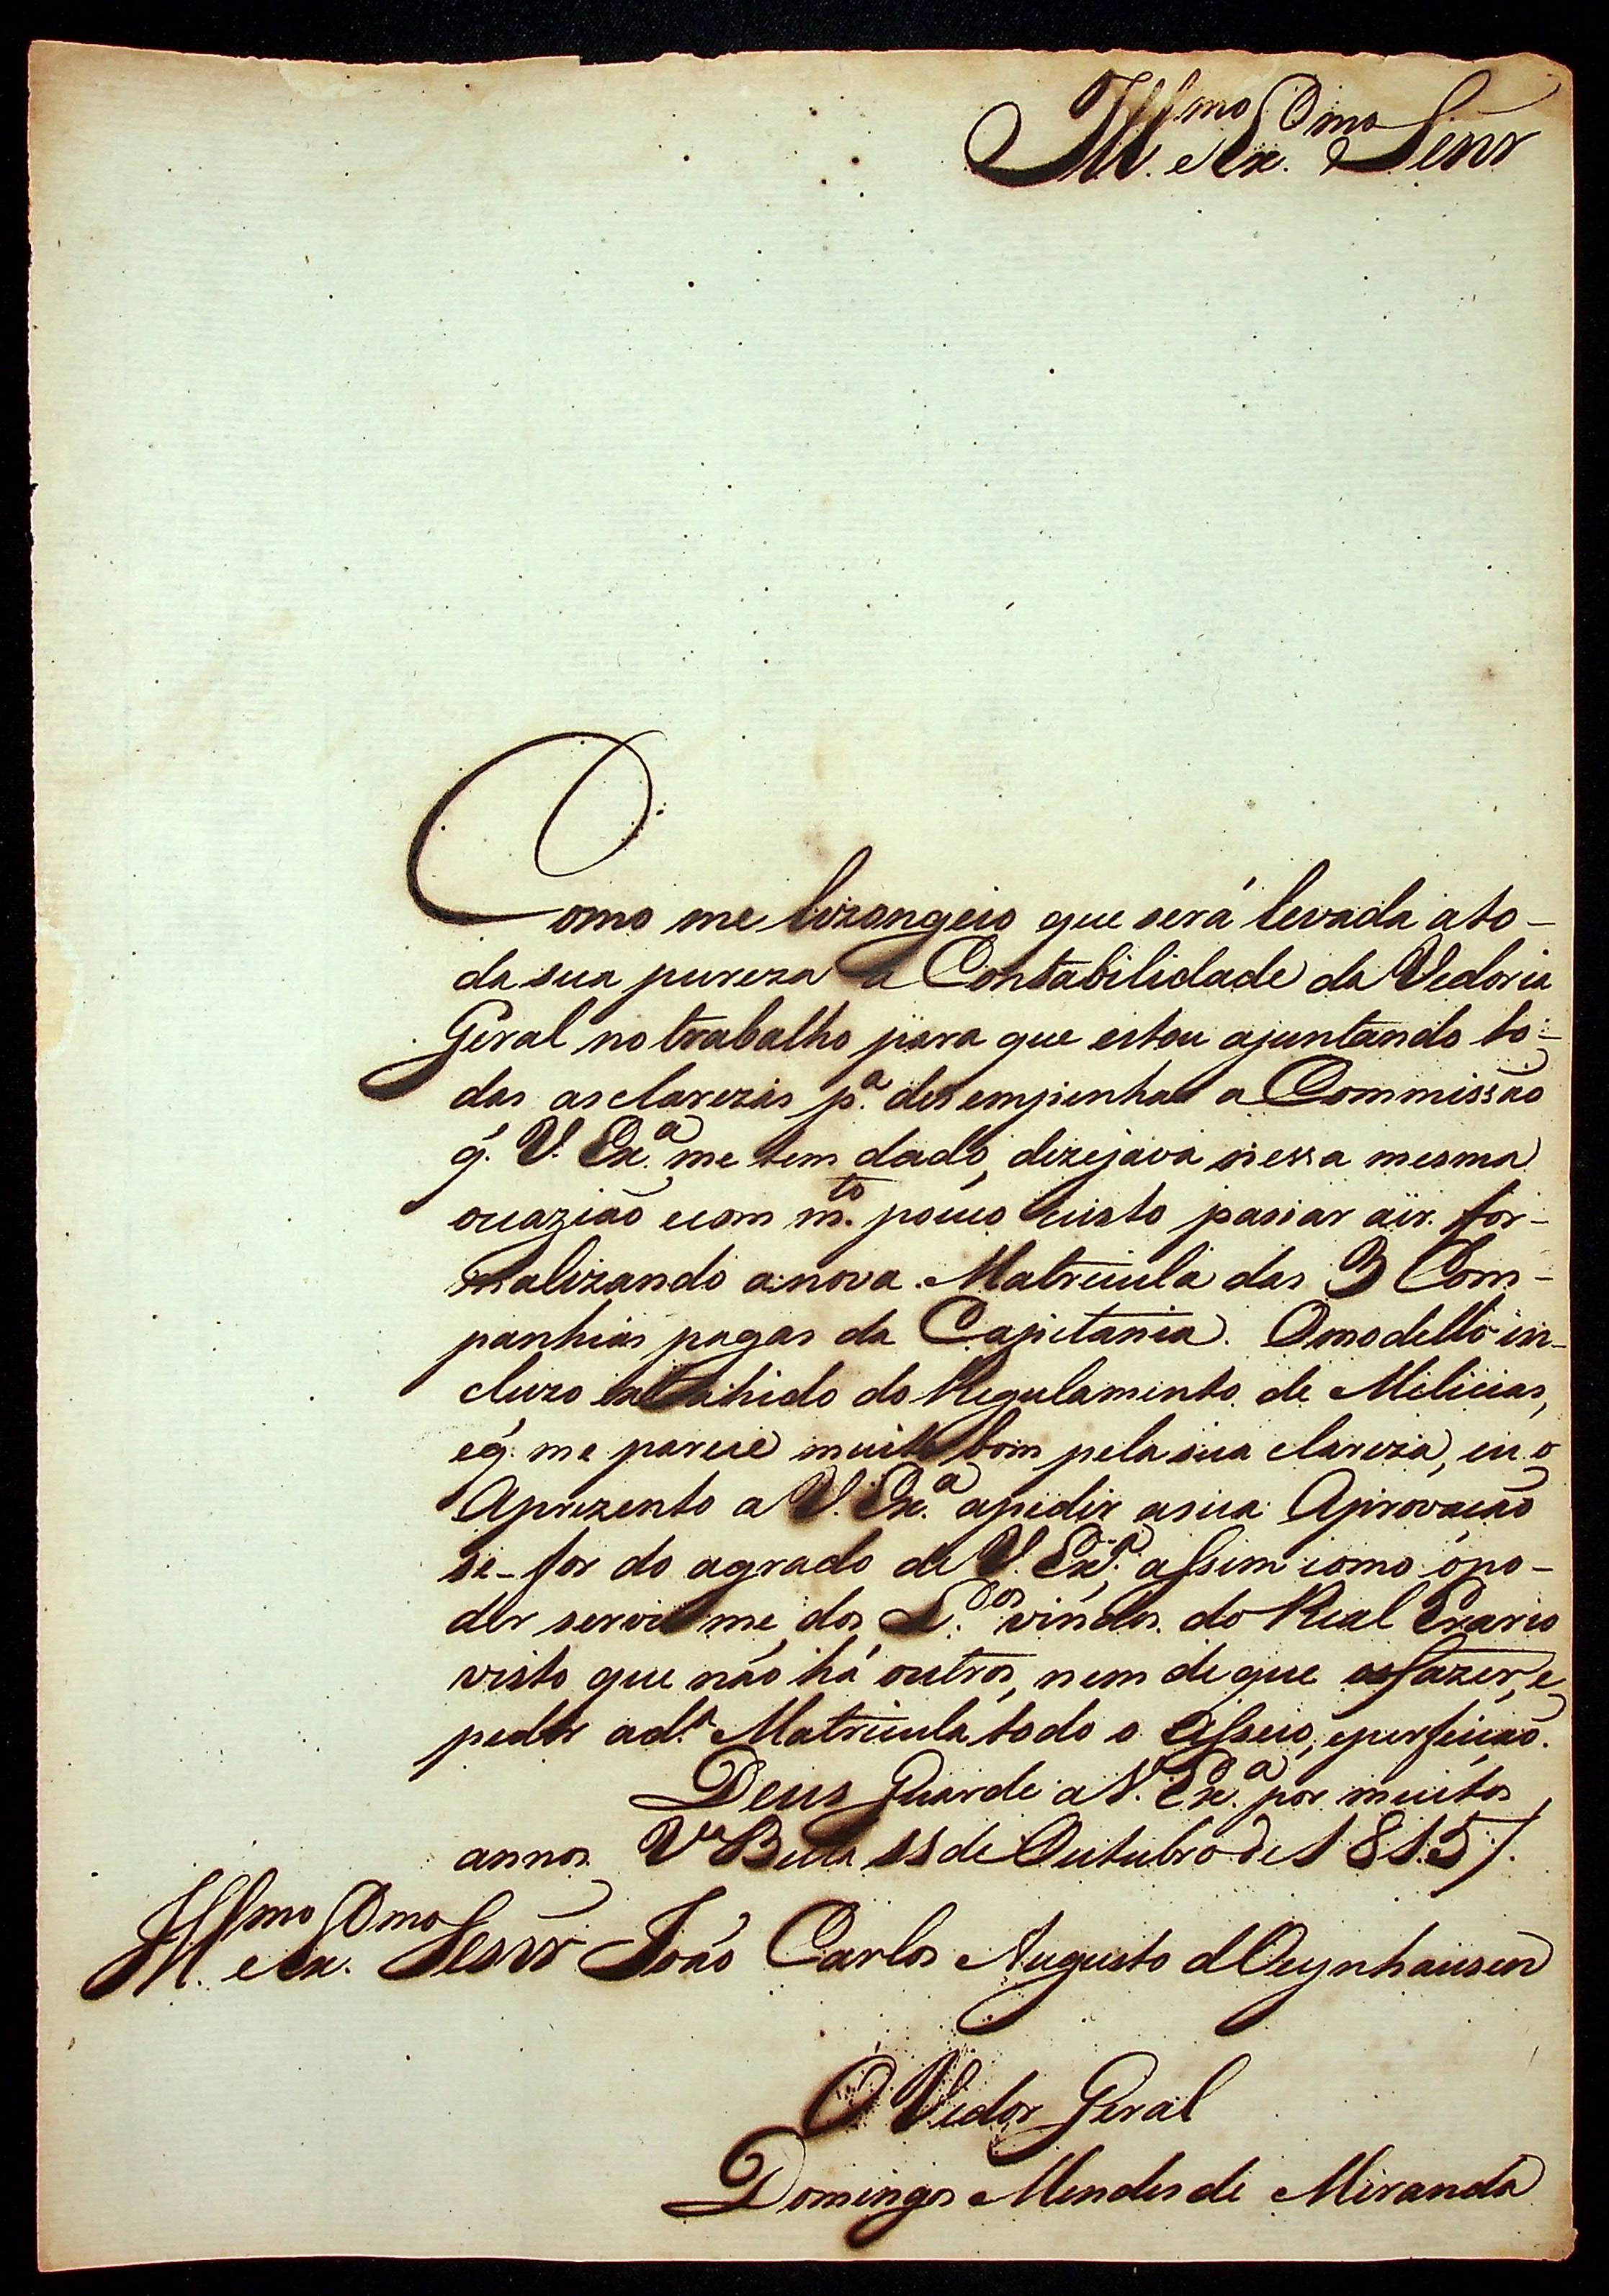 Ill.mo e Ex.mo Senr
Como me lizongeio que será levada ato-
da sua pureza a Contabilidade da Vedoria
Geral no trabalho para que estou ajuntando to-
das as clarezas p.a desempenhar a Commissão
q. V. Ex.a me tem dado, dezejava nessa mesma
occazião e com m.to pouco custo passar a ir for-
malizando a nova Matricula das 3 Com-
panhias pagas da Capitania. O modello in-
cluzo extrahido do Regulamento de Milicias,
e q. me parece muito bom pela sua clareza, eu o
Aprezento a V. Ex.a a pedir a sua Aprovação
se for do agrado de V. Ex.a, assim como o po-
der servir me dos L.os vindos do Real Erario
visto que não há outros, nem de que os fazer, e
pedir a d.a Matricula todo o asseio, e perfeição.
Deus Guarde a V. Ex.a por muitos
annos. V.a Bella 11 de Outubro de 1815.
Ill.mo e Ex.mo Senr João Carlos Augusto d'Oeynhausen
O Vedor Geral
Domingos Mendes de Miranda